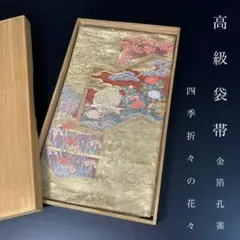 高級袋帯
金箔孔雀
四季折々の花々